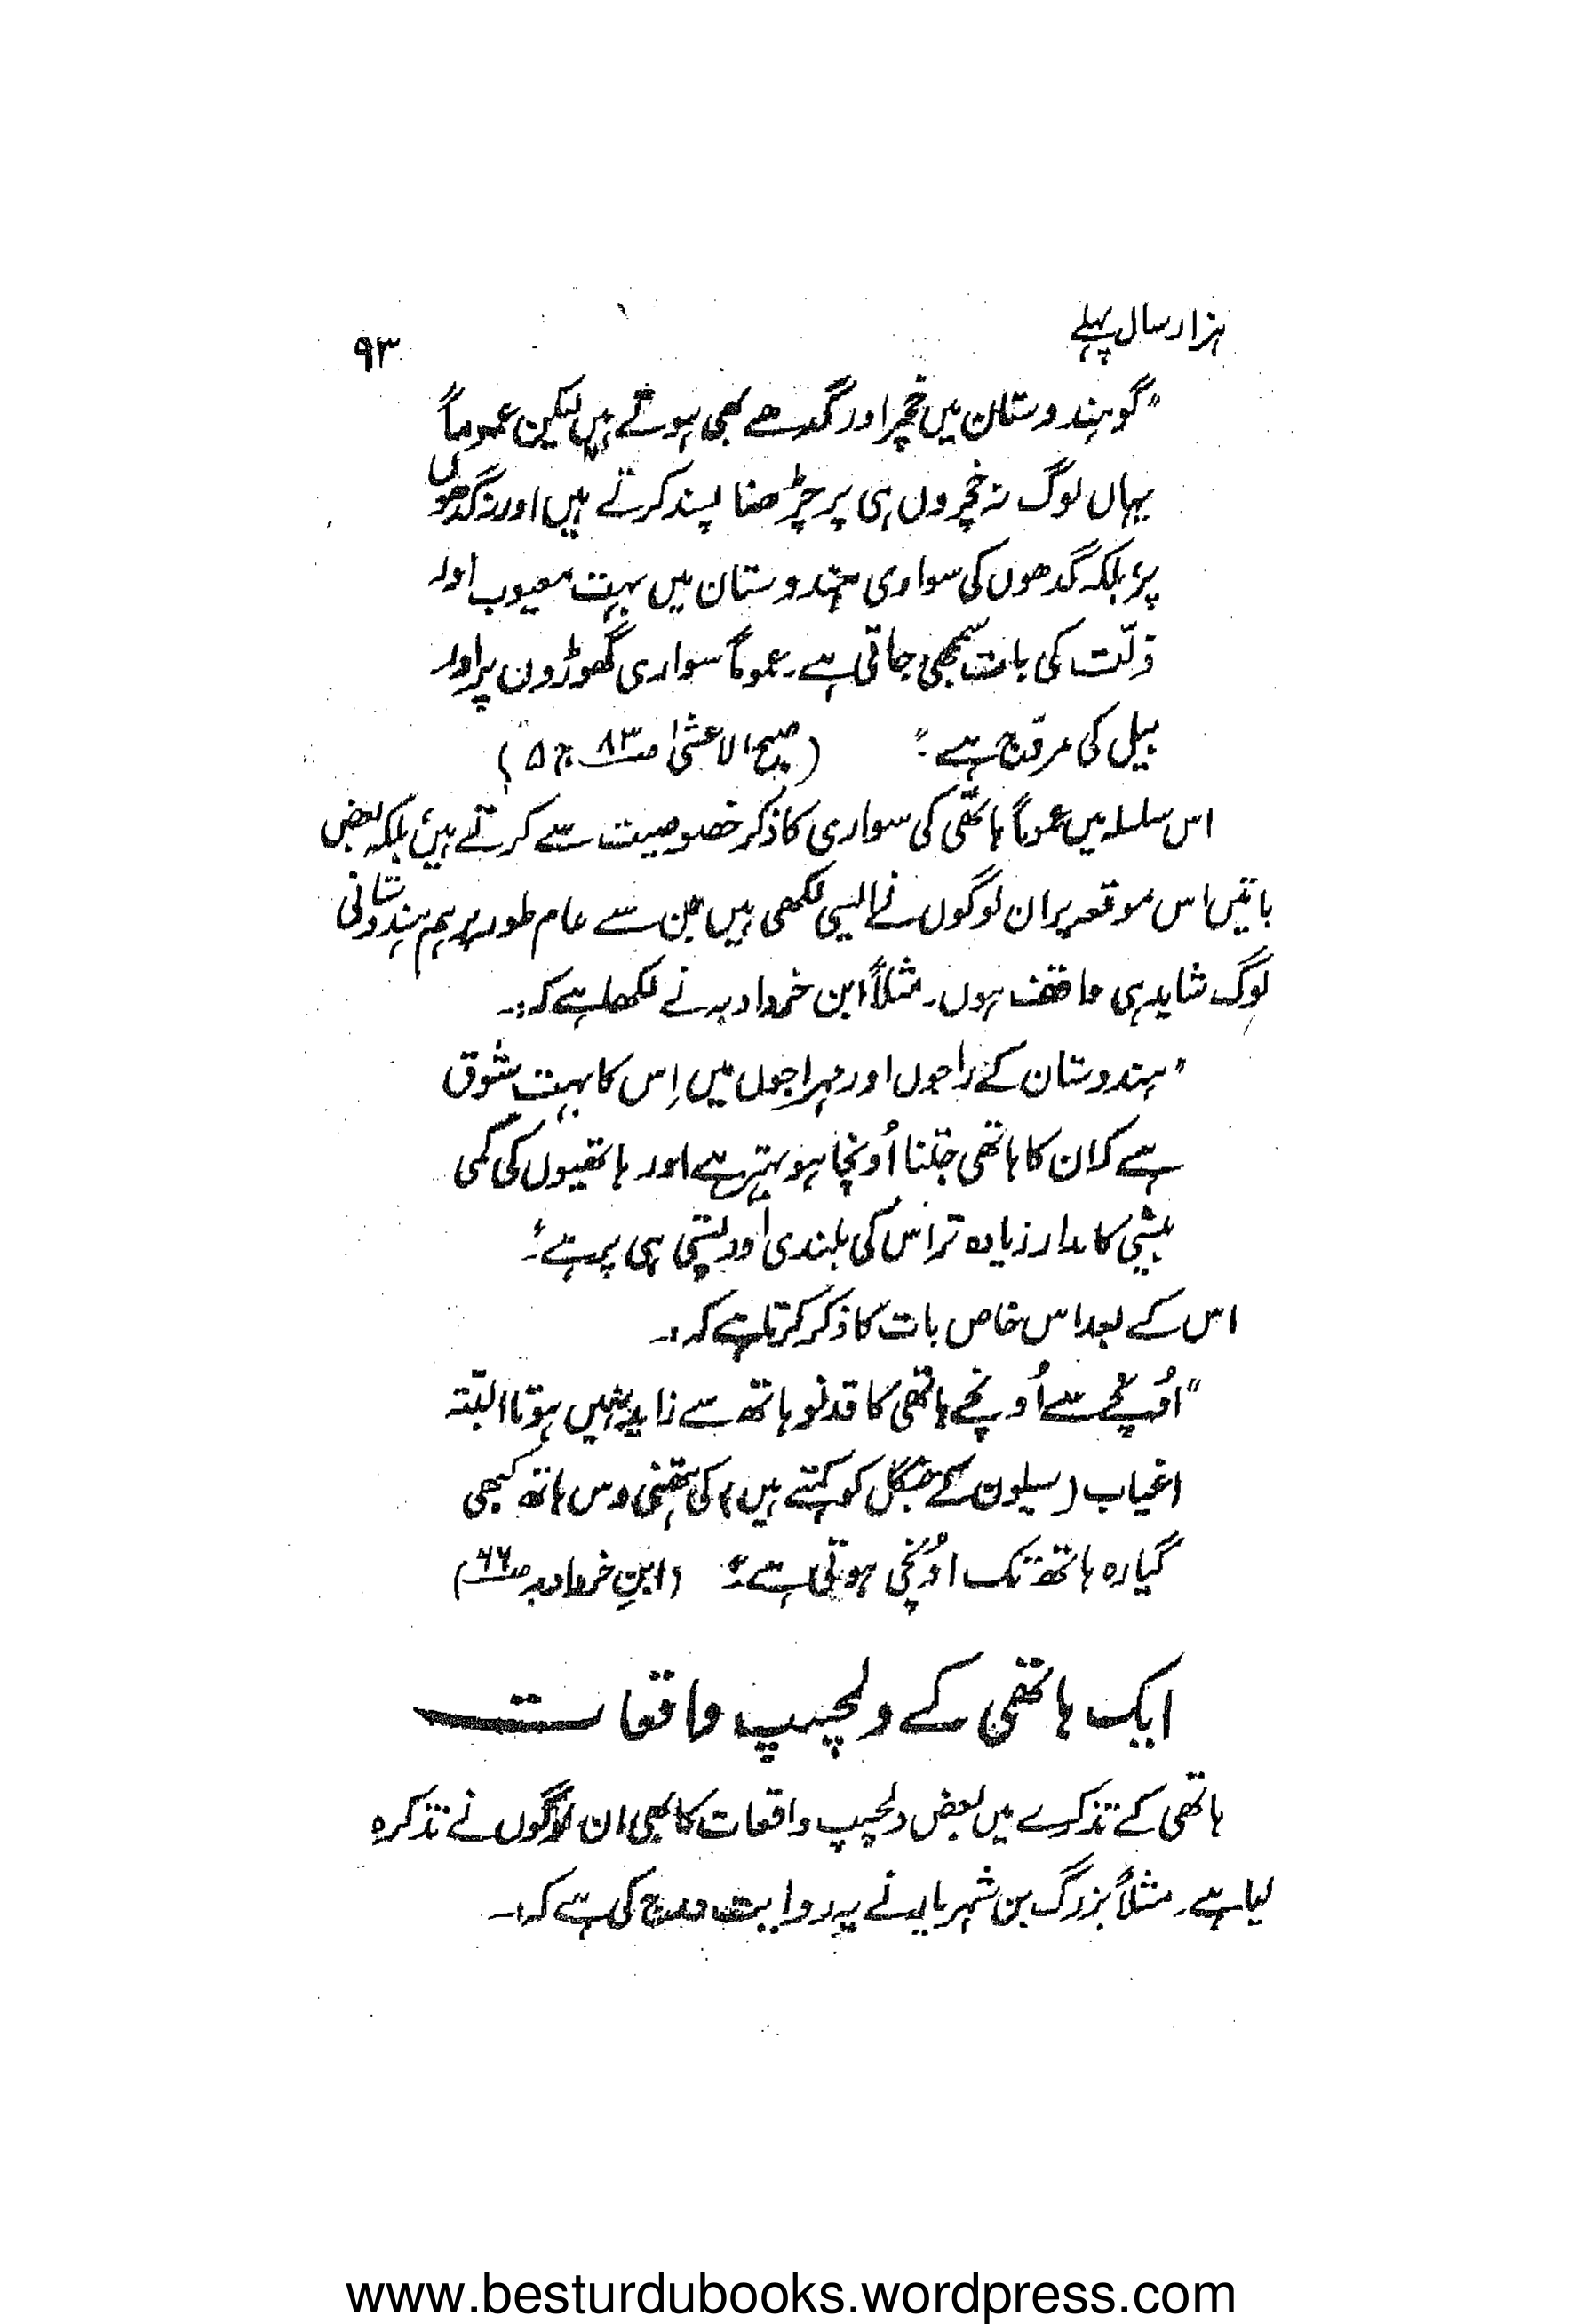 ہزار سال پہلے
۹۳
"گو ہندوستان میں خچر اور گدھے بھی ہوتے ہیں لیکن عموماً
یہاں لوگ نہ خچروں ہی پر چڑھنا پسند کرتے ہیں اور نہ گدھوں
پر، بلکہ گدھوں کی سواری ہندوستان میں بہت معیوب اور
ذلّت کی بات سمجھی جاتی ہے۔ عموماً سواری گھوڑوں پر اور
بیل کی مروّج ہے۔" (صبح الاعشیٰ ص ۸۳ ج ۵)
اس سلسلہ میں عموماً ہاتھی کی سواری کا ذکر خصوصیت سے کرتے ہیں، بلکہ بعض
باتیں اس موقعہ پر ان لوگوں نے ایسی لکھی ہیں جن سے عام طور پر ہم ہندوستانی
لوگ شاید ہی واقف ہوں۔ مثلاً ابن خرداذبہ نے لکھا ہے کہ:۔
"ہندوستان کے راجوں اور مہراجوں میں اِس کا بہت شوق
ہے کہ ان کا ہاتھی جتنا اُونچا ہو بہتر ہے اور ہاتھیوں کی کمی
بیشی کا مدار زیادہ تر اس کی بلندی اور پستی ہی پر ہے۔"
اس کے بعد اس خاص بات کا ذکر کرتا ہے کہ:۔
"اُونچے سے اُونچے ہاتھی کا قد نو ہاتھ سے زاید نہیں ہوتا البتّہ
اغیاب (سیلون کے جنگل کو کہتے ہیں) کی ہتھنی دس ہاتھ کبھی
گیارہ ہاتھ تک اُونچی ہوتی ہے۔" (ابنِ خرداذبہ ص ۶۶)
ایک ہاتھی کے دلچسپ واقعات
ہاتھی کے تذکرے میں بعض دلچسپ واقعات کا بھی ان لوگوں نے تذکرہ
لیا ہے۔ مثلاً بزرگ بن شہریار نے یہ روایت درج کی ہے کہ:۔
www.besturdubooks.wordpress.com